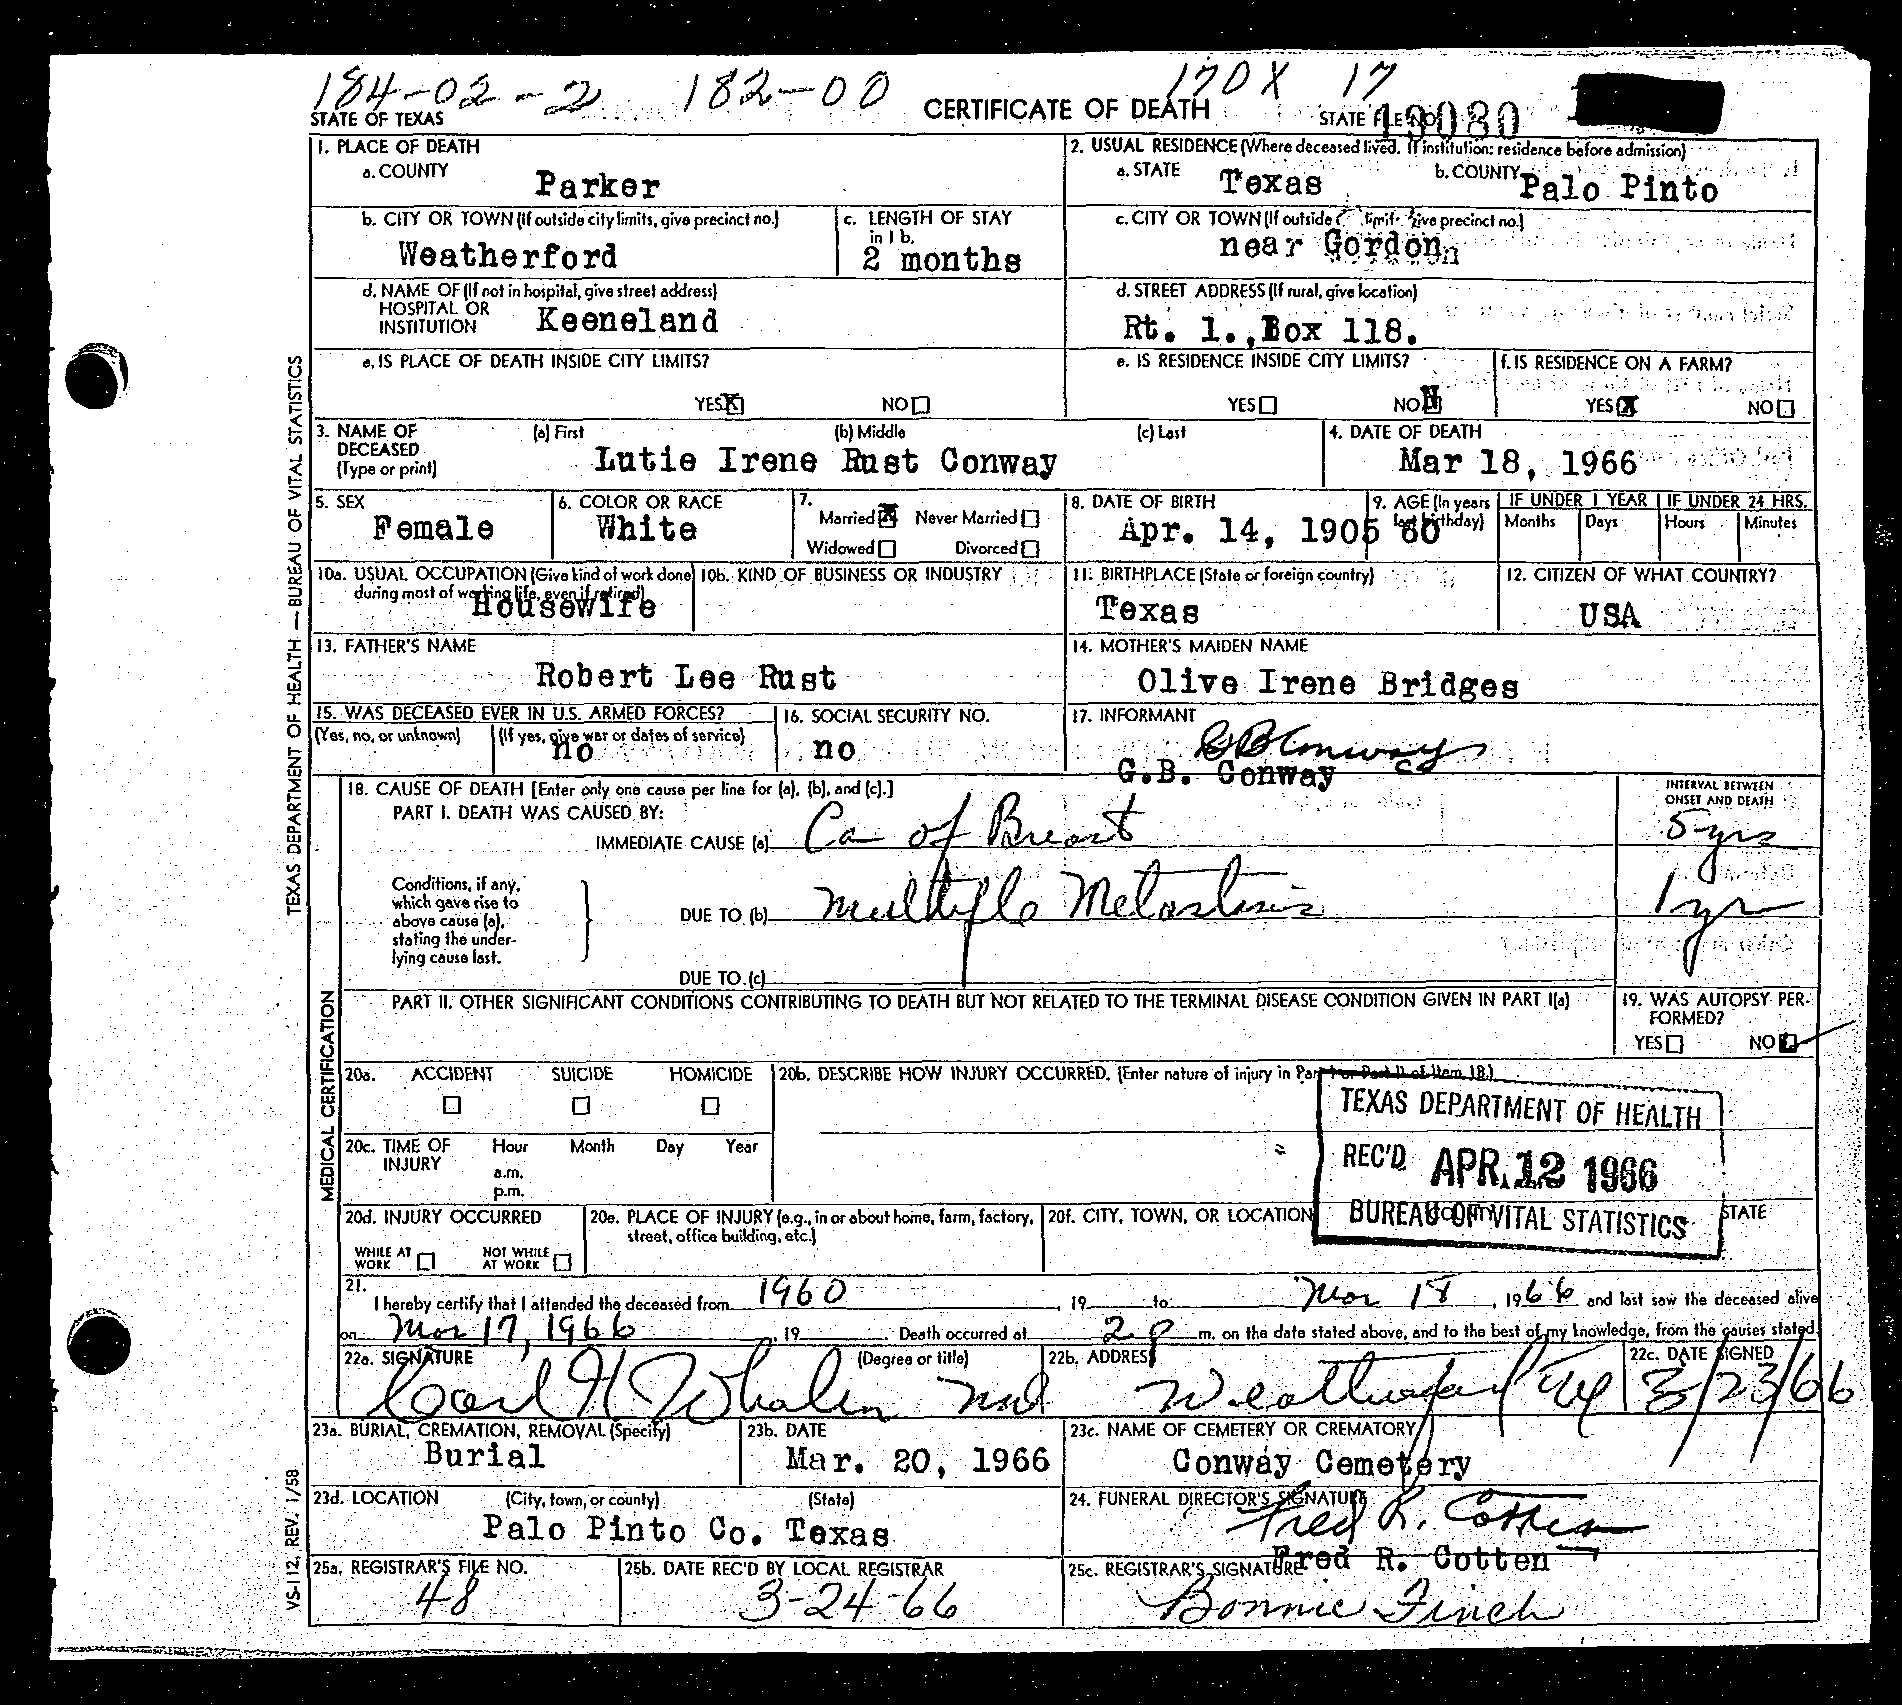 184-02-2 182-00 170X 17
STATE OF TEXAS CERTIFICATE OF DEATH STATE FILE NO. 19080
1. PLACE OF DEATH
a. COUNTY Parker
2. USUAL RESIDENCE (Where deceased lived. If institution: residence before admission)
a. STATE Texas b. COUNTY Palo Pinto
b. CITY OR TOWN (If outside city limits, give precinct no.) Weatherford
c. LENGTH OF STAY in 1 b. 2 months
c. CITY OR TOWN (If outside limits give precinct no.) near Gordon
d. NAME OF (If not in hospital, give street address) HOSPITAL OR INSTITUTION Keeneland
d. STREET ADDRESS (If rural, give location) Rt. 1., Box 118.
e. IS PLACE OF DEATH INSIDE CITY LIMITS?
YES X NO
e. IS RESIDENCE INSIDE CITY LIMITS?
YES NO X
f. IS RESIDENCE ON A FARM?
YES X NO
3. NAME OF DECEASED (Type or print) (a) First (b) Middle (c) Last
Lutie Irene Rust Conway
4. DATE OF DEATH Mar 18, 1966
5. SEX Female
6. COLOR OR RACE White
7. Married X Never Married
Widowed Divorced
8. DATE OF BIRTH Apr. 14, 1905
9. AGE (In years last birthday) 60
IF UNDER 1 YEAR Months Days
IF UNDER 24 HRS. Hours Minutes
10a. USUAL OCCUPATION (Give kind of work done during most of working life, even if retired) Housewife
10b. KIND OF BUSINESS OR INDUSTRY
11. BIRTHPLACE (State or foreign country) Texas
12. CITIZEN OF WHAT COUNTRY? USA
13. FATHER'S NAME Robert Lee Rust
14. MOTHER'S MAIDEN NAME Olive Irene Bridges
15. WAS DECEASED EVER IN U.S. ARMED FORCES?
(Yes, no, or unknown) (If yes, give war or dates of service) no
16. SOCIAL SECURITY NO. no
17. INFORMANT GB Conway
G.B. Conway
18. CAUSE OF DEATH [Enter only one cause per line for (a), (b), and (c).]
PART I. DEATH WAS CAUSED BY:
INTERVAL BETWEEN ONSET AND DEATH
IMMEDIATE CAUSE (a) Ca of Breast 5 yrs
Conditions, if any, which gave rise to above cause (a), stating the underlying cause last.
DUE TO (b) Multiple Metastasis 1 yr
DUE TO (c)
PART II. OTHER SIGNIFICANT CONDITIONS CONTRIBUTING TO DEATH BUT NOT RELATED TO THE TERMINAL DISEASE CONDITION GIVEN IN PART I(a)
19. WAS AUTOPSY PERFORMED?
YES NO
20a. ACCIDENT SUICIDE HOMICIDE
20b. DESCRIBE HOW INJURY OCCURRED. (Enter nature of injury in Part I or Part II of Item 18.)
20c. TIME OF INJURY Hour Month Day Year
a.m.
p.m.
TEXAS DEPARTMENT OF HEALTH
REC'D APR. 12 1966
BUREAU OF VITAL STATISTICS
20d. INJURY OCCURRED
WHILE AT WORK NOT WHILE AT WORK
20e. PLACE OF INJURY (e.g., in or about home, farm, factory, street, office building, etc.)
20f. CITY, TOWN, OR LOCATION COUNTY STATE
21. I hereby certify that I attended the deceased from 1960, 19 to Mar 18, 1966 and last saw the deceased alive
on Mar 17, 1966, 19 . Death occurred at 2 P m. on the date stated above, and to the best of my knowledge, from the causes stated.
22a. SIGNATURE (Degree or title) Carl H Whalen Md
22b. ADDRESS Weatherford Tex
22c. DATE SIGNED 3/23/66
23a. BURIAL, CREMATION, REMOVAL (Specify) Burial
23b. DATE Mar. 20, 1966
23c. NAME OF CEMETERY OR CREMATORY Conway Cemetery
23d. LOCATION (City, town, or county) (State) Palo Pinto Co. Texas
24. FUNERAL DIRECTOR'S SIGNATURE Fred R. Cotten
Fred R. Cotten
25a. REGISTRAR'S FILE NO. 48
25b. DATE REC'D BY LOCAL REGISTRAR 3-24-66
25c. REGISTRAR'S SIGNATURE Bonnie Finch
TEXAS DEPARTMENT OF HEALTH — BUREAU OF VITAL STATISTICS
MEDICAL CERTIFICATION
VS-112, REV. 1/58